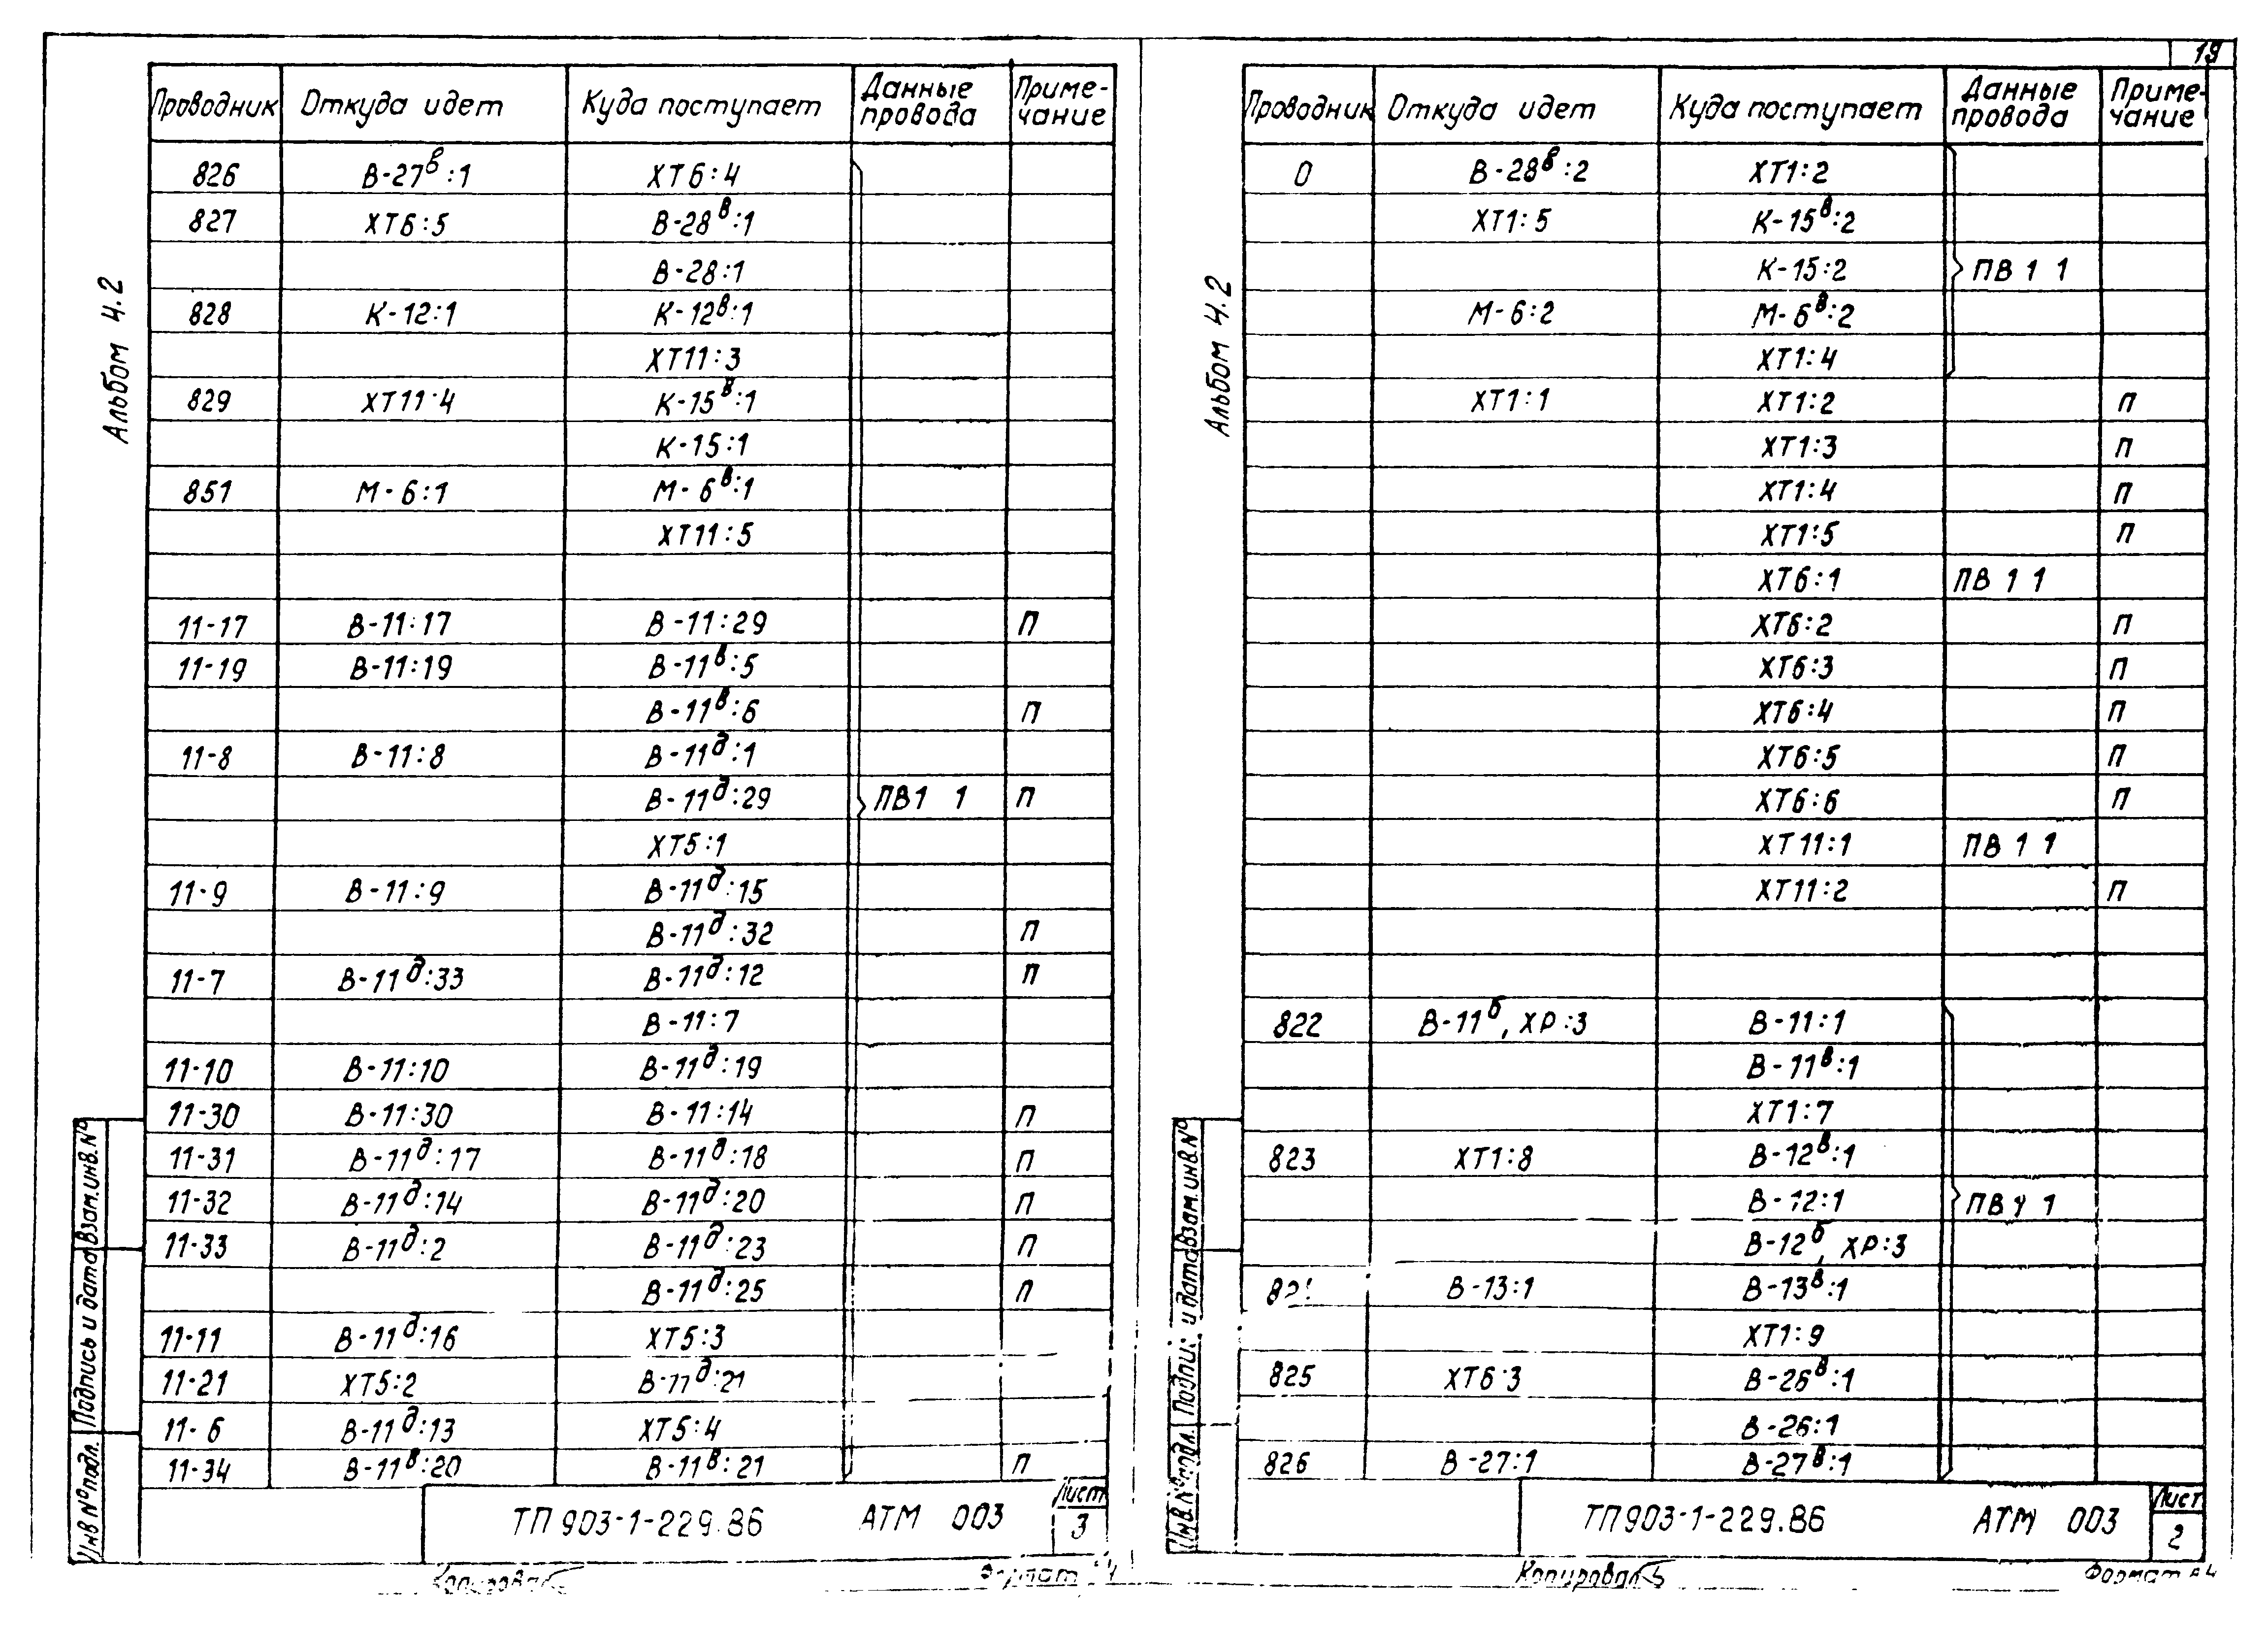 Альбом 4.2
Проводник Откуда идет Куда поступает Данные провода Приме-чание
826 В-27ᵇ:1 ХТ6:4
827 ХТ6:5 В-28ᵇ:1
В-28:1
828 К-12:1 К-12ᵇ:1
ХТ11:3
829 ХТ11:4 К-15ᵇ:1
К-15:1
851 М-6:1 М-6ᵇ:1
ХТ11:5
11-17 В-11:17 В-11:29 П
11-19 В-11:19 В-11ᵇ:5
В-11ᵇ:6 П
11-8 В-11:8 В-11ᵈ:1
В-11ᵈ:29 ПВ1 1 П
ХТ5:1
11-9 В-11:9 В-11ᵈ:15
В-11ᵈ:32 П
11-7 В-11ᵈ:33 В-11ᵈ:12 П
В-11:7
11-10 В-11:10 В-11ᵈ:19
11-30 В-11:30 В-11:14 П
11-31 В-11ᵈ:17 В-11ᵈ:18 П
11-32 В-11ᵈ:14 В-11ᵈ:20 П
11-33 В-11ᵈ:2 В-11ᵈ:23 П
В-11ᵈ:25 П
11-11 В-11ᵈ:16 ХТ5:3
11-21 ХТ5:2 В-11ᵈ:21
11-6 В-11ᵈ:13 ХТ5:4
11-34 В-11ᵇ:20 В-11ᵇ:21 П
Инв № подл. Подпись и дата Взам.инв.№
ТП 903-1-229.86 АТМ 003 Лист 3
Копировал Формат
19
Альбом 4.2
Проводник Откуда идет Куда поступает Данные провода Приме-чание
0 В-28ᵇ:2 ХТ1:2
ХТ1:5 К-15ᵇ:2
К-15:2 ПВ 1 1
М-6:2 М-6ᵇ:2
ХТ1:4
ХТ1:1 ХТ1:2 П
ХТ1:3 П
ХТ1:4 П
ХТ1:5 П
ХТ6:1 ПВ 1 1
ХТ6:2 П
ХТ6:3 П
ХТ6:4 П
ХТ6:5 П
ХТ6:6 П
ХТ11:1 ПВ 1 1
ХТ11:2 П
822 В-11ᵟ, ХР:3 В-11:1
В-11ᵇ:1
ХТ1:7
823 ХТ1:8 В-12ᵇ:1
В-12:1 ПВ 1 1
В-12ᵟ, ХР:3
В-13:1 В-13ᵇ:1
ХТ1:9
825 ХТ6:3 В-26ᵇ:1
В-26:1
826 В-27:1 В-27ᵇ:1
Инв.№ подл. и дата Взам.инв.№
ТП 903-1-229.86 АТМ 003 Лист 2
Копировал Формат А4